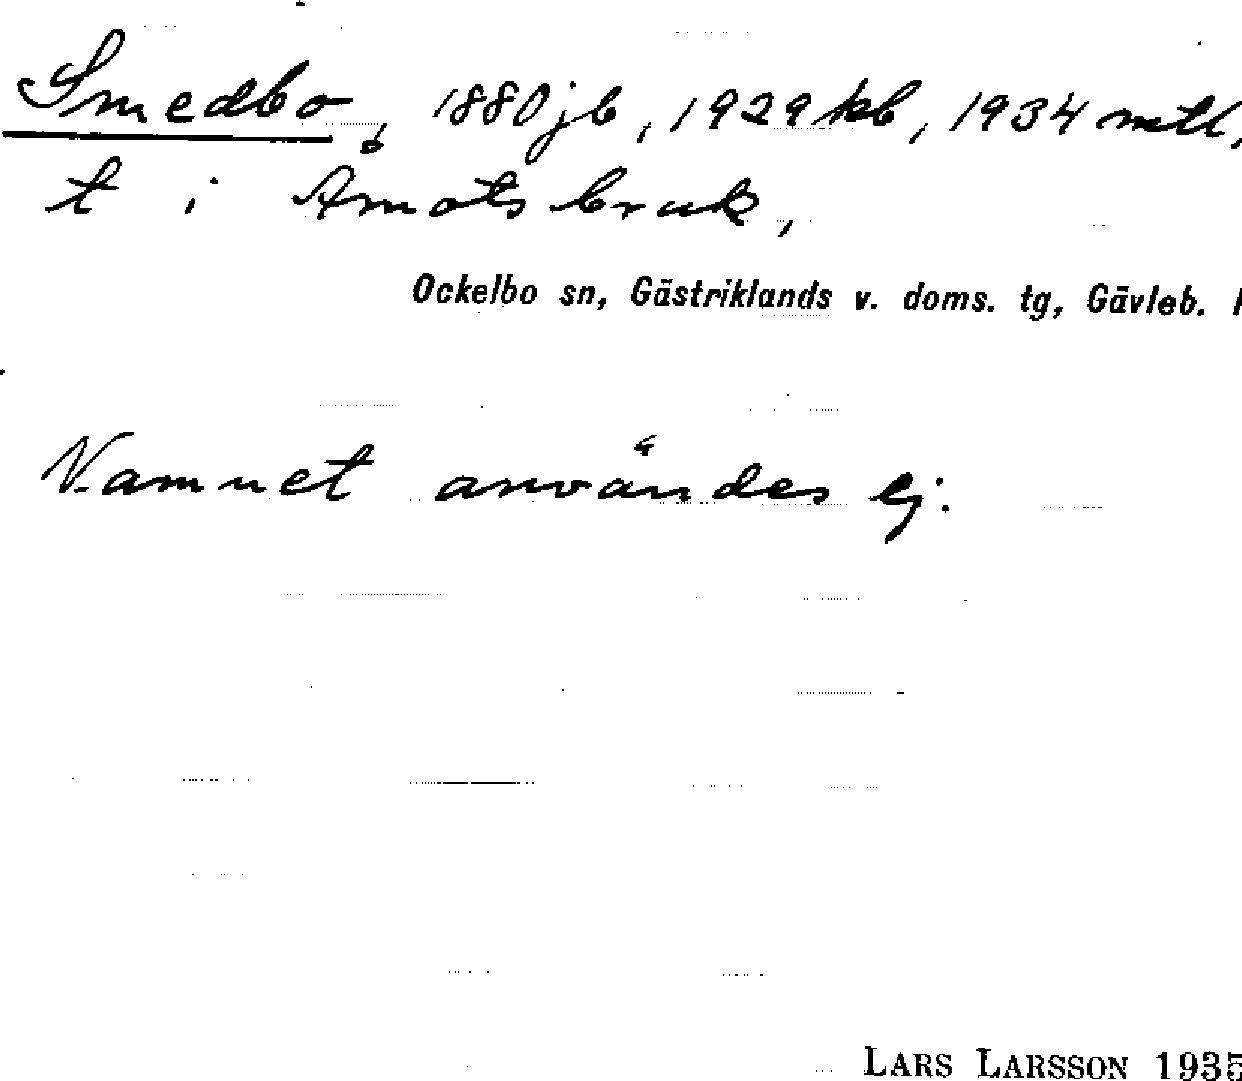 Smedbo, 1880 jb, 1929 kb, 1934 mtl,
t i Åmots bruk,
Ockelbo sn, Gästriklands v. doms. tg, Gävleb. l
Namnet användes ej.
LARS LARSSON 1935